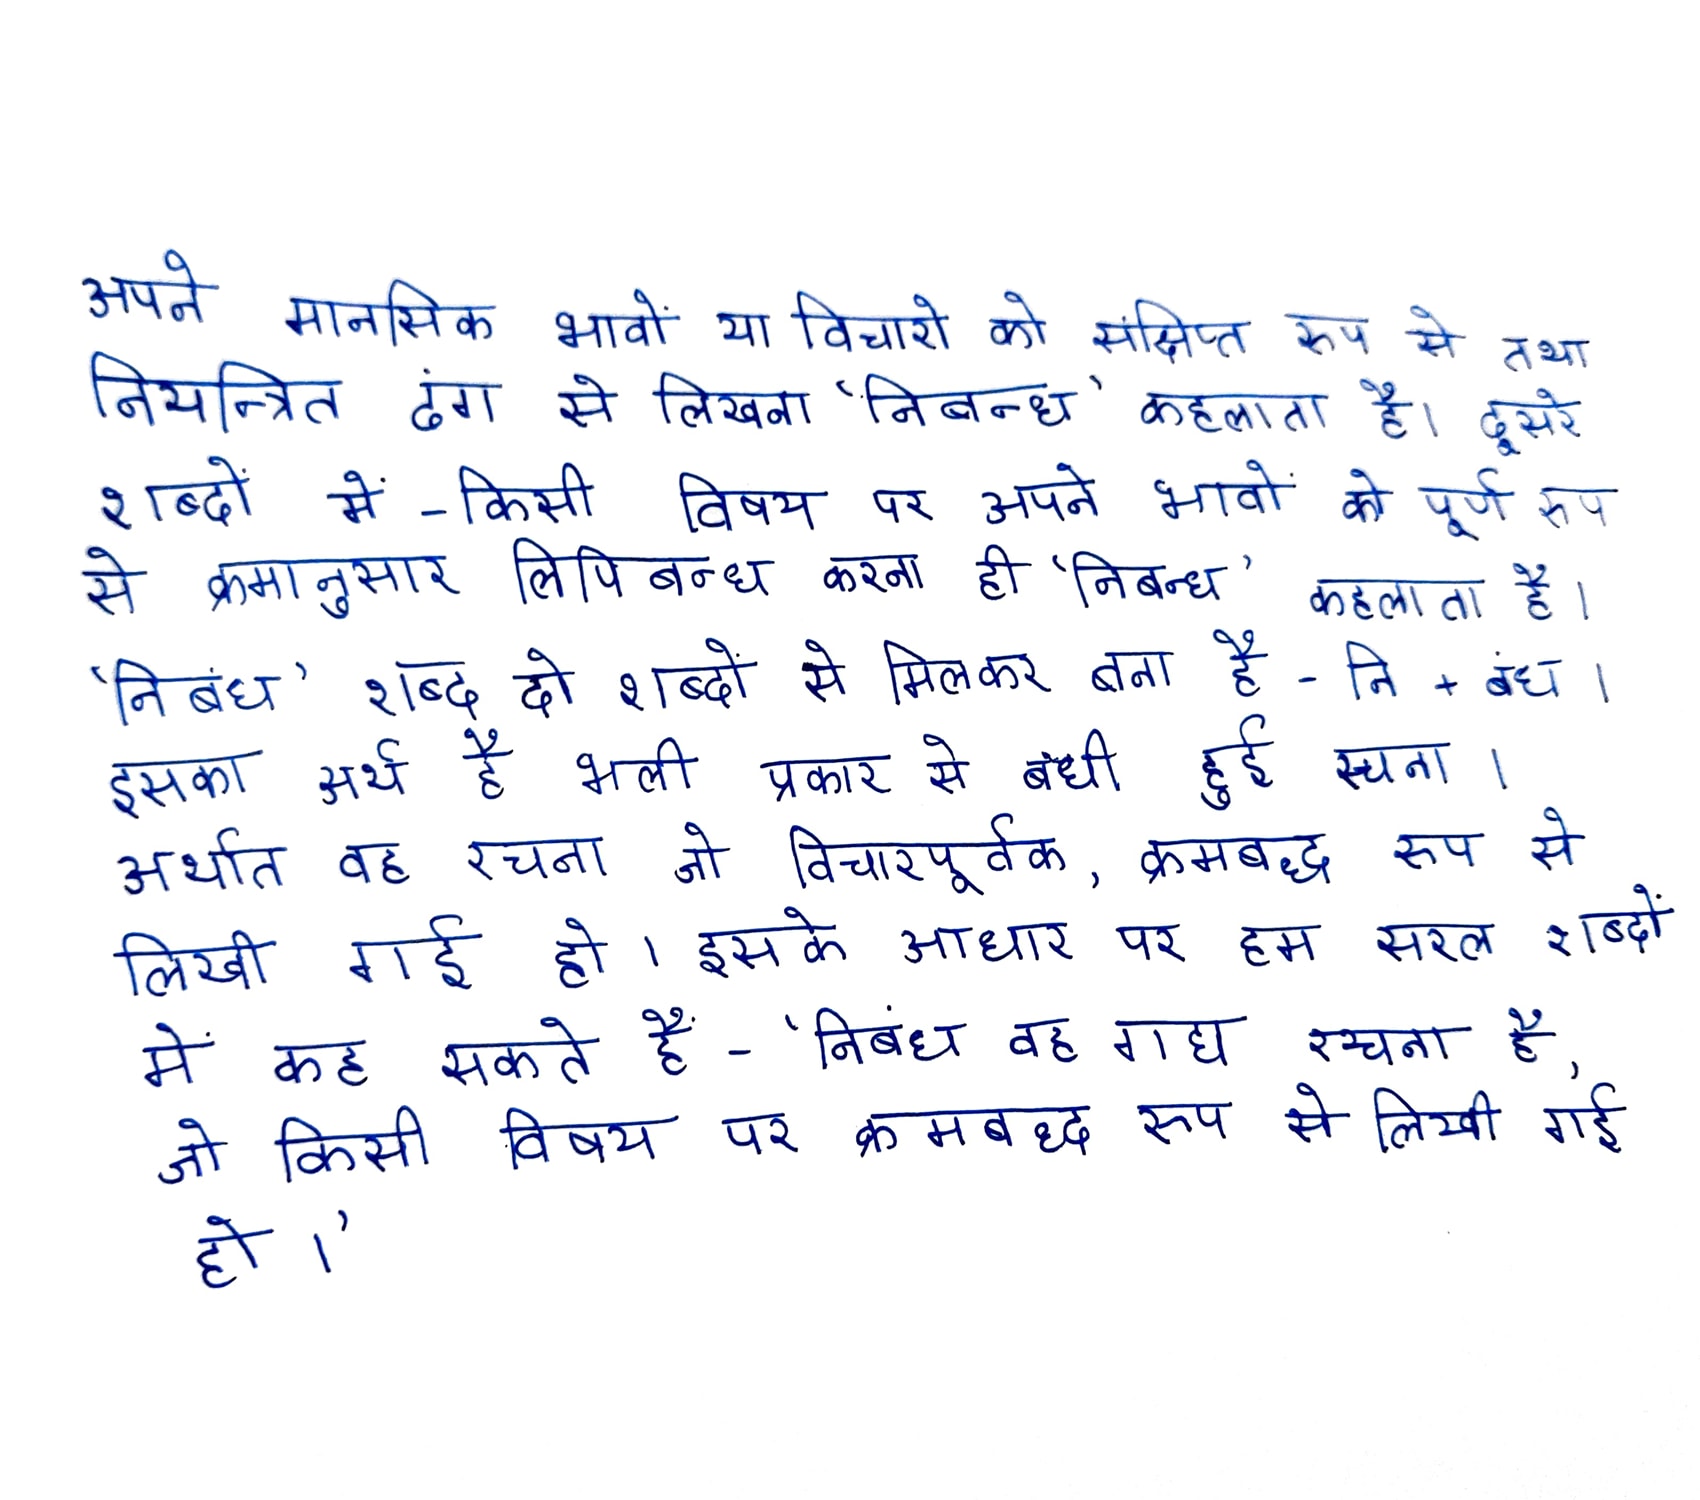 अपने मानसिक भावों या विचारो को संक्षिप्त रुप से तथा
नियन्त्रित ढंग से लिखना 'निबन्ध' कहलाता है। दूसरे
शब्दों में - किसी विषय पर अपने भावों को पूर्ण रुप
से क्रमानुसार लिपिबन्ध करना ही 'निबन्ध' कहलाता है।
'निबंध' शब्द दो शब्दों से मिलकर बना है - नि + बंध।
इसका अर्थ है भली प्रकार से बंधी हुई रचना।
अर्थात वह रचना जो विचारपूर्वक, क्रमबद्ध रूप से
लिखी गई हो। इसके आधार पर हम सरल शब्दों
में कह सकते हैं - 'निबंध वह गद्य रचना है,
जो किसी विषय पर क्रमबध्द रूप से लिखी गई
हो।'